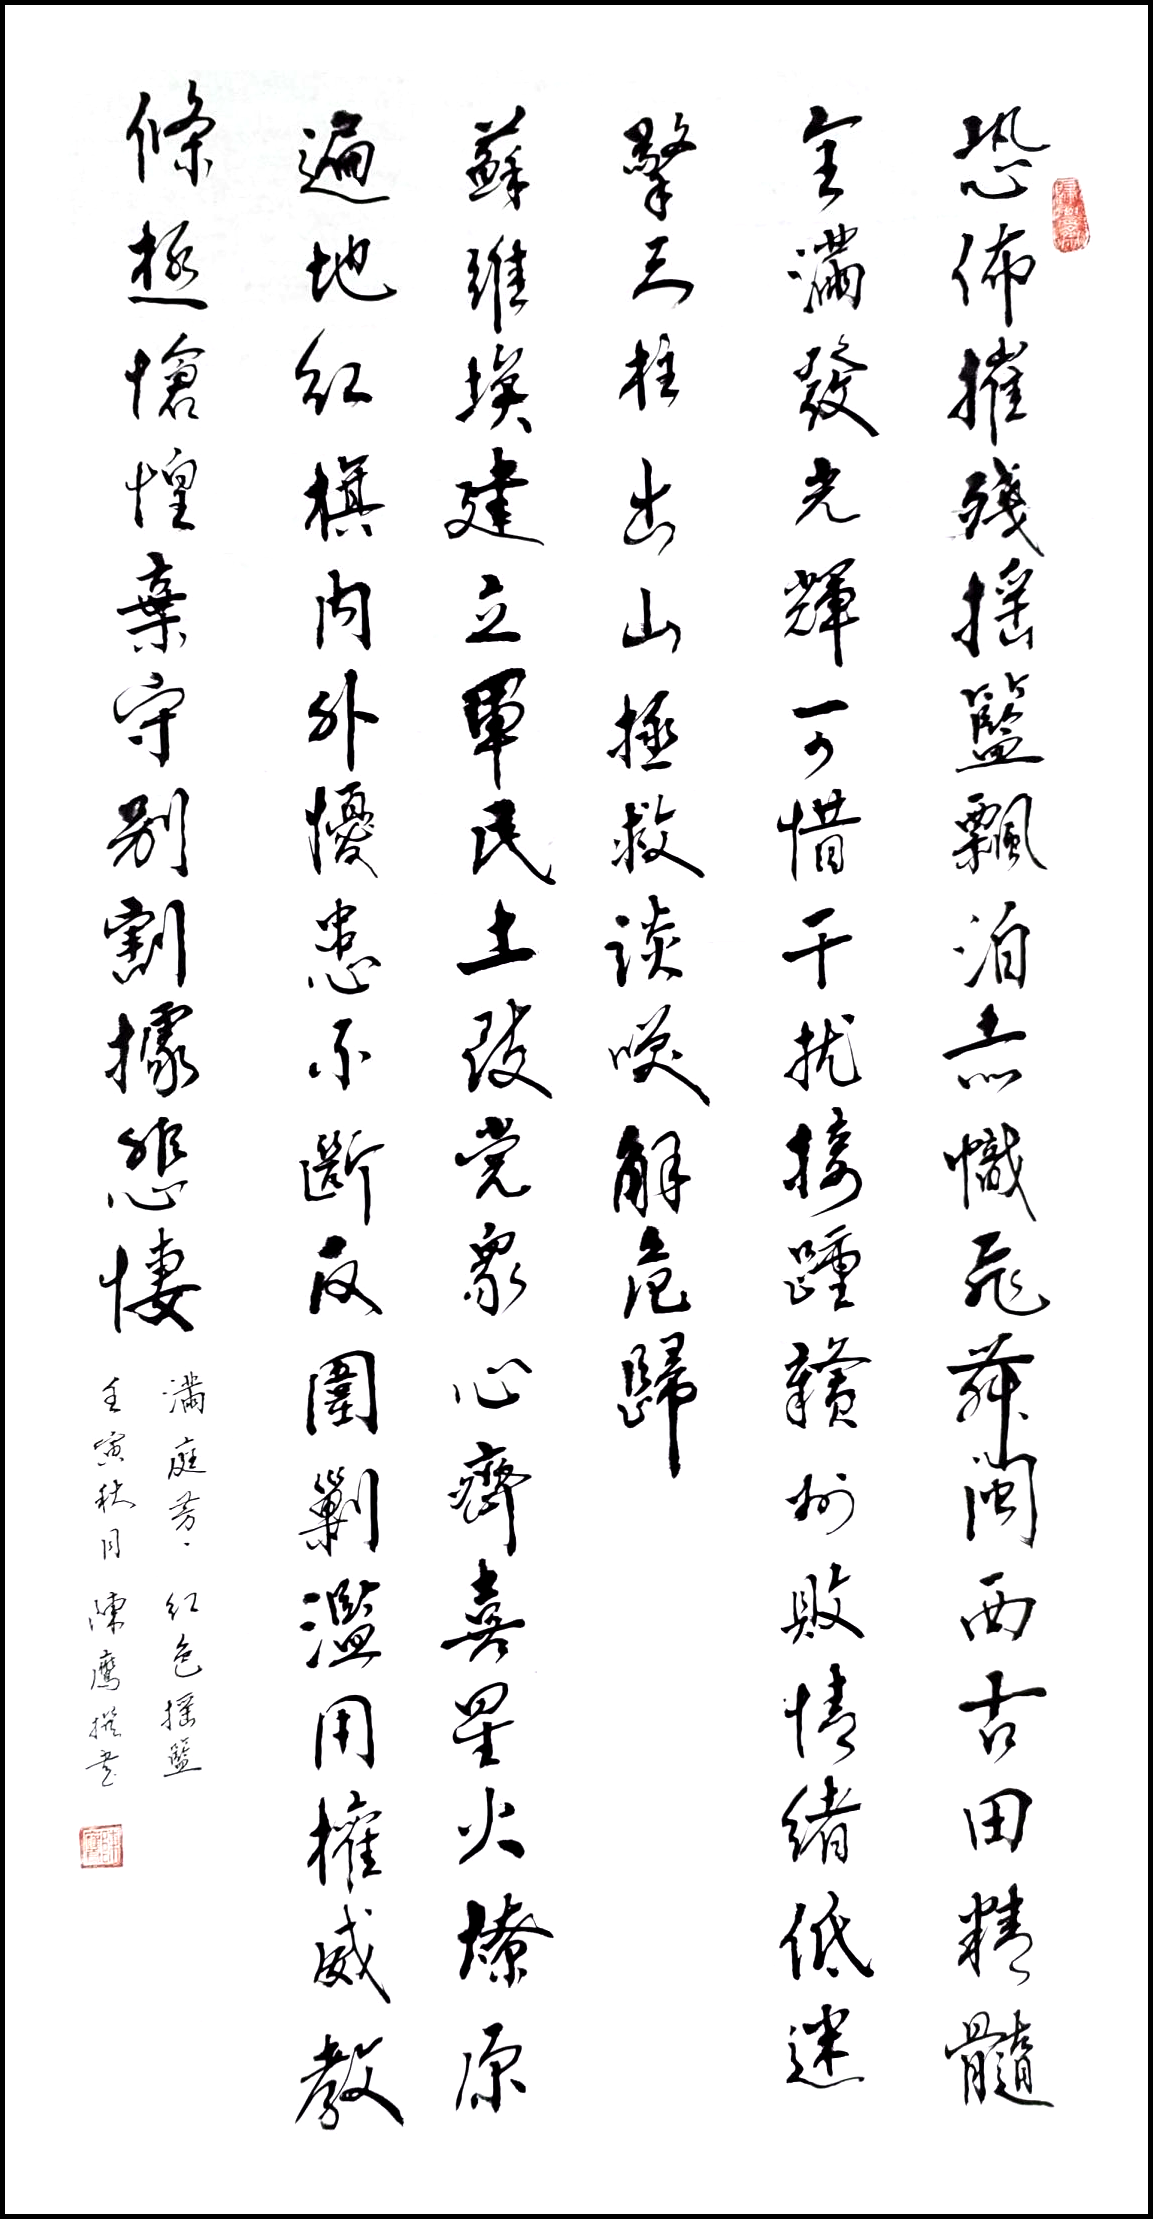 恐佈摧殘摇籃飄泊赤幟飛舞閩西古田精髓
全滿發光輝可惜干扰接踵贛州敗情緒低迷
擎天柱出山拯救談咲解危歸
蘇維埃建立軍民土改党眾心齊喜星火燎原
遍地紅旗内外懮患不斷反圍剿濫用權威教
條極愴惶棄守别割據悲悽
滿庭芳·红色摇籃
壬寅秋月 陳鷹撰書